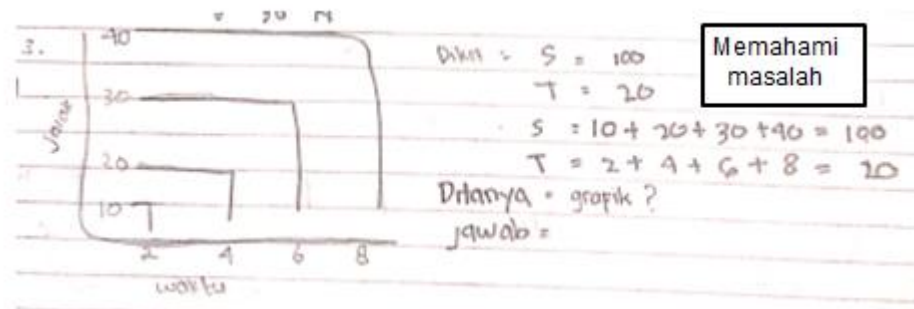 = 30 N
3.
40
30
20
10
Jarak
2 4 6 8
waktu
Dikit = S = 100
T = 20
S = 10 + 20 + 30 + 40 = 100
T = 2 + 4 + 6 + 8 = 20
Ditanya = grafik ?
jawab =
Memahami
masalah